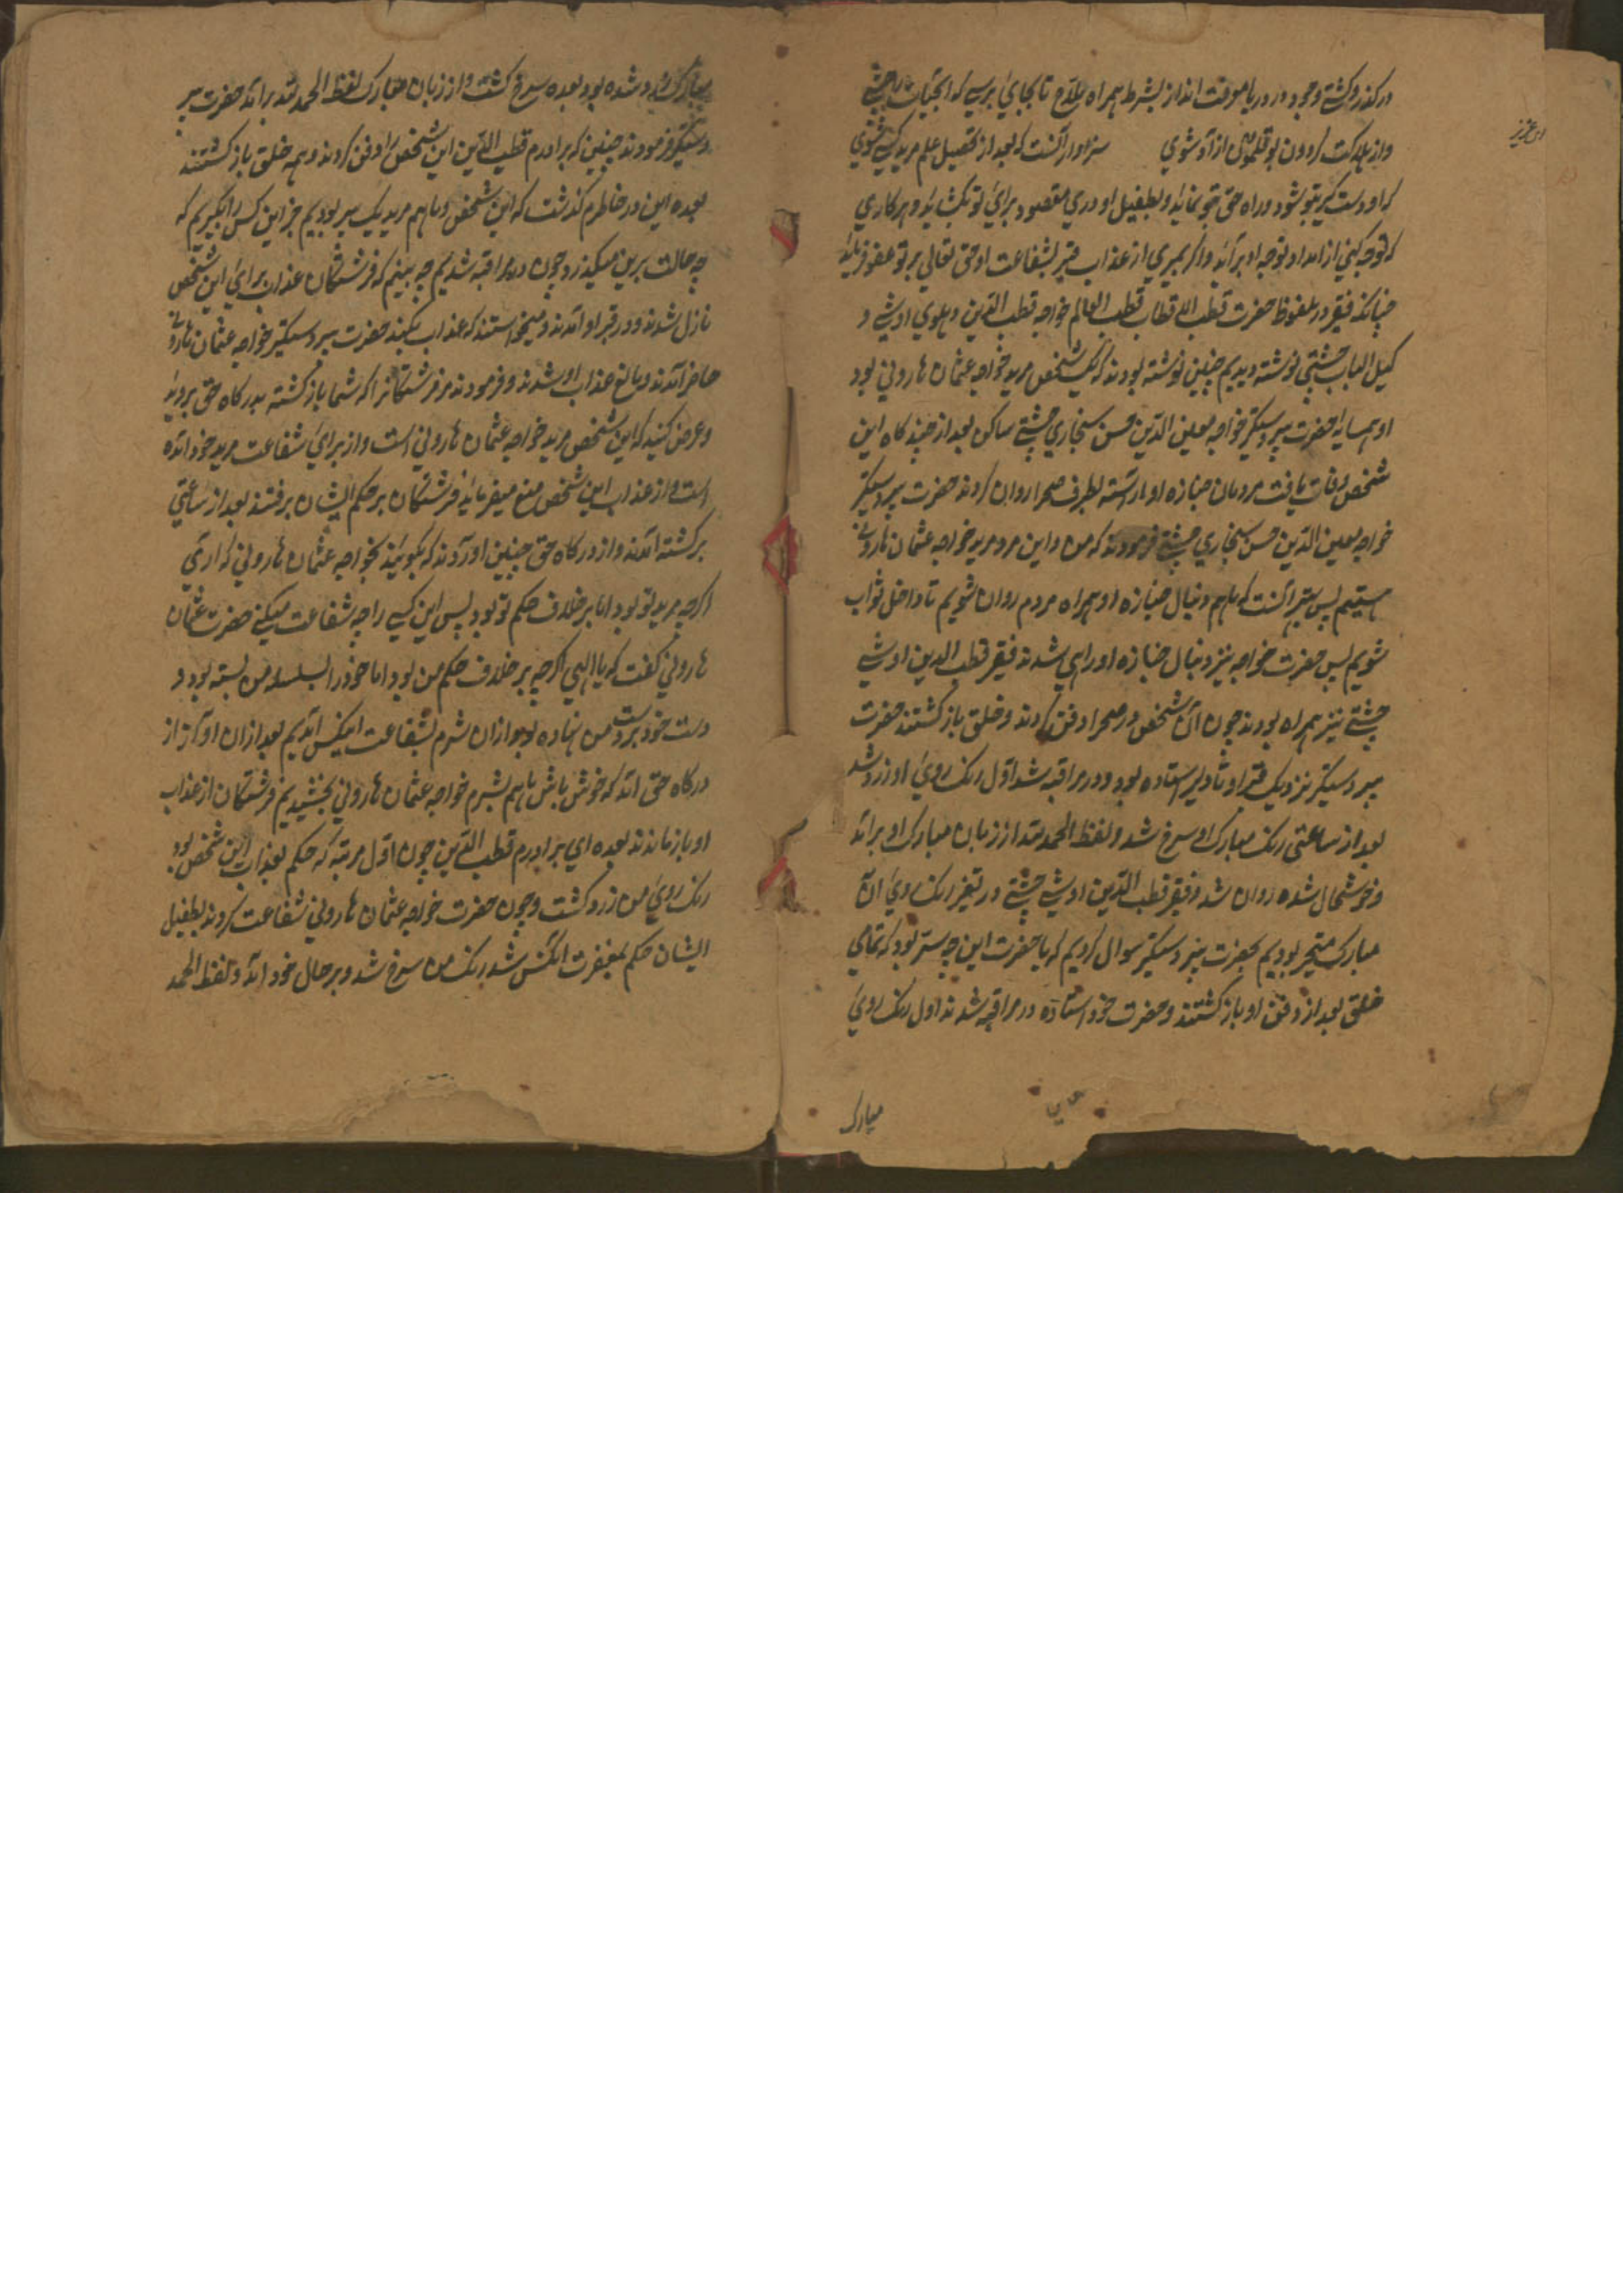 در کذرد کشتے وجود در دریا موقت انداز بشرط همراه ملاح تا بجایٔ برسے که
واز هلاکت کردون بوقلمون ازاد شوی سزاوار آنست که بعد از تحصیل علم مرید کسے شوی
ای عزیز
که او دست کیر تو شود و راه حق بتو نماید و بطفیل او دری مقصود برایٔ تو بکشاید و هر کاری
که توجه کنی از امداد توجه او براید و اکر بمیری از عذاب قبر بشفاعت او حق تعالی بر تو عفو فرماید
چنانکه فقیر در ملفوظ حضرت قطب الاقطاب قطب العالم خواجه قطب الدین دهلوی اوشے و
چشتی نوشته دیدیم چنین نوشته بودند که یک شخص مرید خواجه عثمان هارونی بود
او همسایهٔ حضرت پیر دستکیر خواجه معین الدین حسن سنجاری چشتے ساکن بعد از چند کاه این
شخص وفات یافت مردمان جنازه او اراسته بطرف صحرا روان کردند حضرت پیر دستکیر
خواجه معین الدین حسن سنجاری چشتے فرمودند که من و این مرد مرید خواجه عثمان هارونے
هستیم پس بهتر انست که ما هم دنبال جنازه او همراه مردم روان شویم تا داخل ثواب
شویم پس حضرت خواجه نیز دنبال جنازه او راهی شدند فقیر قطب الدین اوشے
چشتے نیز همراه بودند چون ان شخص در صحرا دفن کردند و خلق باز کشتند حضرت
پیر دستکیر نزدیک قبر او تا دیر ستاده بود و در مراقبه شد اول رنک رویٔ او زرد شد
بعد از ساعتی رنک مبارک او سرخ شد و لفظ الحمد لله از زبان مبارک او براند
و خوشحال شده روان شد و فقیر قطب الدین اوشے چشتے در تغیر رنک رویٔ ان
مبارک متحیر بودیم بحضرت پیر دستکیر سوال کردیم که یا حضرت این چه سر بود که تمامی
خلق بعد از دفن او باز کشتند و حضرت خود استاده در مراقبه شدند اول رنک رویٔ
مبارک
مبارک زرد شده بود بعده سرخ کشت و از زبان مبارک لفظ الحمد لله براند حضرت پیر
دستکیر فرمودند چنین که برادرم قطب الدین این شخص را دفن کردند و همه خلق باز کشتند
بعده این در خاطرم کذشت که این شخص و ما هم مرید یک پیر بودیم خبر این کس را بکیریم که
چه حالت برین میکذرد چون در مراقبه شدیم چه بینم که فرشتکان عذاب برایٔ این شخص
نازل شدند و در قبر او آمدند و میخواستند که عذاب بکنند حضرت پیر دستکیر خواجه عثمان هارونے
حاضر آمدند و مانع عذاب او شدند و فرمودند مر فرشتکانرا که شما باز کشته بدرکاه حق بروید
و عرض کنید که این شخص مرید خواجه عثمان هارونی است و از برایٔ شفاعت مرید خود آمده
است و از عذاب این شخص منع میفرماید فرشتکان بر حکم ایشان برفتند بعد از ساعتی
برکشته آمدند و از درکاه حق چنین اوردند که بکویند بخواجه عثمان هارونی که اری
اکرچه مرید تو بود اما بر خلاف حکم تو بود پس این کسے را چه شفاعت میکنے حضرت عثمان
هارونی کفت که یا الهی اکرچه بر خلاف حکم من بود اما خود را بسلسله من بسته بود و
دست خود بر دست من نهاده بود ازان شرم بشفاعت اینکس آمدیم بعد ازان اواز از
درکاه حق آمد که خوش باش ما هم بشرم خواجه عثمان هارونی بخشیدیم فرشتکان از عذاب
او باز ماندند بعده ای برادرم قطب الدین چون اول مرتبه که حکم بعذاب این شخص بود
رنک رویٔ من زرد کشت و چون حضرت خواجه عثمان هارونی شفاعت کردند بطفیل
ایشان حکم بمغفرت انکس شد رنک من سرخ شد و بر حال خود آمد و لفظ الحمد